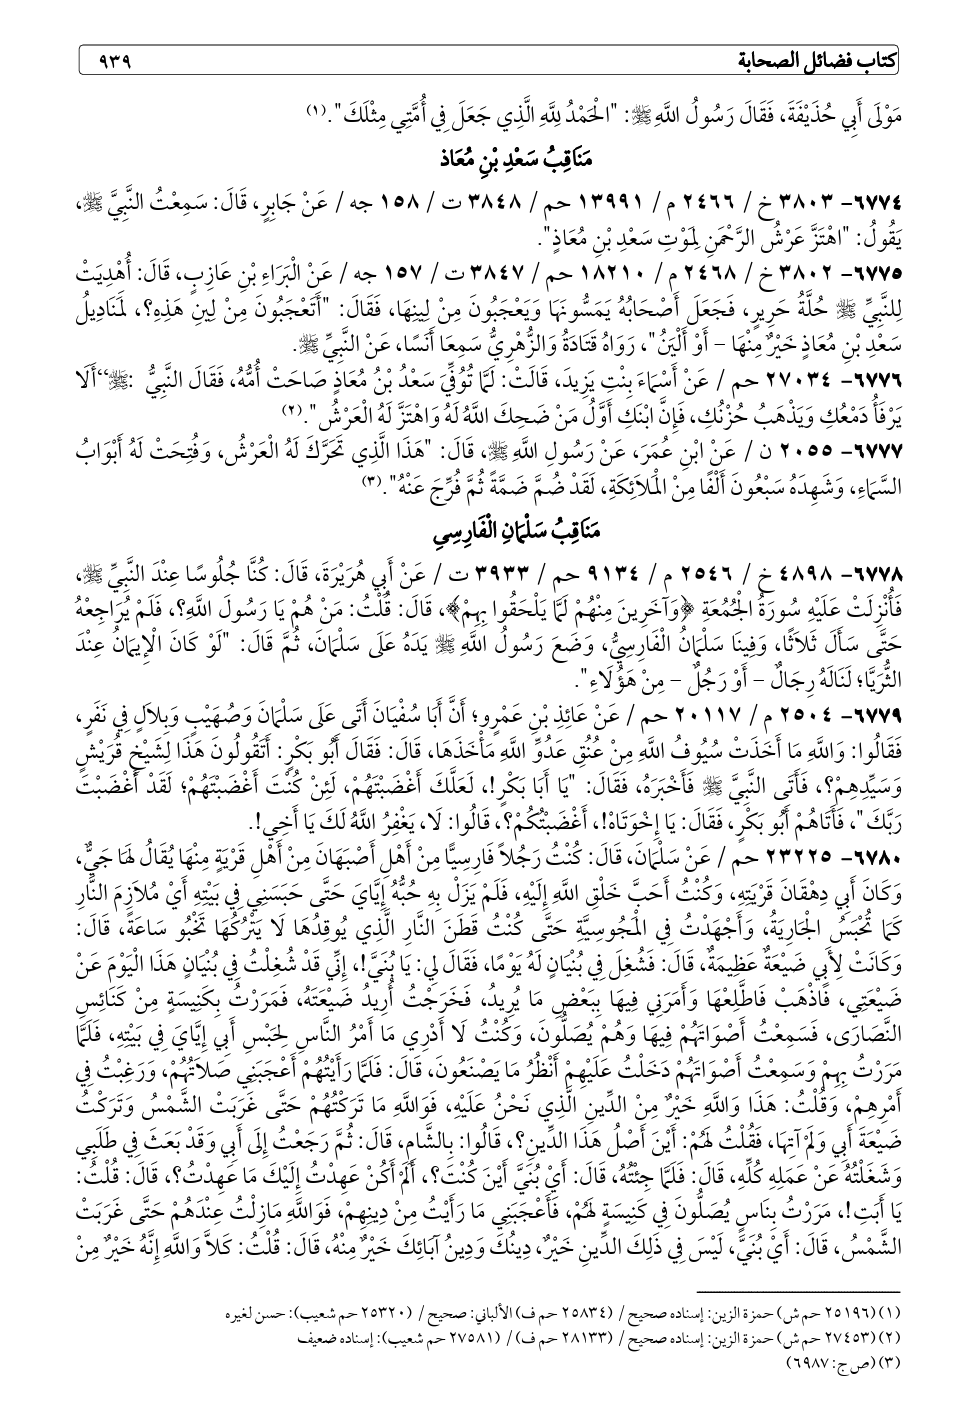 كتاب فضائل الصحابة ٩٣٩
مَوْلَى أَبِي حُذَيْفَةَ، فَقَالَ رَسُولُ اللَّهِ ﷺ: "الْحَمْدُ لِلَّهِ الَّذِي جَعَلَ فِي أُمَّتِي مِثْلَكَ".(١)
مَنَاقِبُ سَعْدِ بْنِ مُعَاذ
٦٧٧٤- ٣٨٠٣ خ/ ٢٤٦٦ م/ ١٣٩٩١ حم/ ٣٨٤٨ ت/ ١٥٨ جه/ عَنْ جَابِرٍ، قَالَ: سَمِعْتُ النَّبِيَّ ﷺ،
يَقُولُ: "اهْتَزَّ عَرْشُ الرَّحْمَنِ لِمَوْتِ سَعْدِ بْنِ مُعَاذٍ".
٦٧٧٥- ٣٨٠٢ خ/ ٢٤٦٨ م/ ١٨٢١٠ حم/ ٣٨٤٧ ت/ ١٥٧ جه/ عَنْ الْبَرَاءِ بْنِ عَازِبٍ، قَالَ: أُهْدِيَتْ
لِلنَّبِيِّ ﷺ حُلَّةُ حَرِيرٍ، فَجَعَلَ أَصْحَابُهُ يَمَسُّونَهَا وَيَعْجَبُونَ مِنْ لِينِهَا، فَقَالَ: "أَتَعْجَبُونَ مِنْ لِينِ هَذِهِ؟، لَمَنَادِيلُ
سَعْدِ بْنِ مُعَاذٍ خَيْرٌ مِنْهَا – أَوْ أَلْيَنُ"، رَوَاهُ قَتَادَةُ وَالزُّهْرِيُّ سَمِعَا أَنَسًا، عَنْ النَّبِيِّ ﷺ.
٦٧٧٦- ٢٧٠٣٤ حم/ عَنْ أَسْمَاءَ بِنْتِ يَزِيدَ، قَالَتْ: لَمَّا تُوُفِّيَ سَعْدُ بْنُ مُعَاذٍ صَاحَتْ أُمُّهُ، فَقَالَ النَّبِيُّ ﷺ: "أَلَا
يَرْفَأُ دَمْعُكِ وَيَذْهَبُ حُزْنُكِ، فَإِنَّ ابْنَكِ أَوَّلُ مَنْ ضَحِكَ اللَّهُ لَهُ وَاهْتَزَّ لَهُ الْعَرْشُ".(٢)
٦٧٧٧- ٢٠٥٥ ن/ عَنْ ابْنِ عُمَرَ، عَنْ رَسُولِ اللَّهِ ﷺ، قَالَ: "هَذَا الَّذِي تَحَرَّكَ لَهُ الْعَرْشُ، وَفُتِحَتْ لَهُ أَبْوَابُ
السَّمَاءِ، وَشَهِدَهُ سَبْعُونَ أَلْفًا مِنْ الْمَلَائِكَةِ، لَقَدْ ضُمَّ ضَمَّةً ثُمَّ فُرِّجَ عَنْهُ".(٣)
مَنَاقِبُ سَلْمَانِ الْفَارِسِي
٦٧٧٨- ٤٨٩٨ خ/ ٢٥٤٦ م/ ٩١٣٤ حم/ ٣٩٣٣ ت/ عَنْ أَبِي هُرَيْرَةَ، قَالَ: كُنَّا جُلُوسًا عِنْدَ النَّبِيِّ ﷺ،
فَأُنْزِلَتْ عَلَيْهِ سُورَةُ الْجُمُعَةِ ﴿وَآخَرِينَ مِنْهُمْ لَمَّا يَلْحَقُوا بِهِمْ﴾، قَالَ: قُلْتُ: مَنْ هُمْ يَا رَسُولَ اللَّهِ؟، فَلَمْ يُرَاجِعْهُ
حَتَّى سَأَلَ ثَلَاثًا، وَفِينَا سَلْمَانُ الْفَارِسِيُّ، وَضَعَ رَسُولُ اللَّهِ ﷺ يَدَهُ عَلَى سَلْمَانَ، ثُمَّ قَالَ: "لَوْ كَانَ الْإِيمَانُ عِنْدَ
الثُّرَيَّا؛ لَنَالَهُ رِجَالٌ – أَوْ رَجُلٌ – مِنْ هَؤُلَاءِ".
٦٧٧٩- ٢٥٠٤ م/ ٢٠١١٧ حم/ عَنْ عَائِذِ بْنِ عَمْرٍو؛ أَنَّ أَبَا سُفْيَانَ أَتَى عَلَى سَلْمَانَ وَصُهَيْبٍ وَبِلَالٍ فِي نَفَرٍ،
فَقَالُوا: وَاللَّهِ مَا أَخَذَتْ سُيُوفُ اللَّهِ مِنْ عُنُقِ عَدُوِّ اللَّهِ مَأْخَذَهَا، قَالَ: فَقَالَ أَبُو بَكْرٍ: أَتَقُولُونَ هَذَا لِشَيْخِ قُرَيْشٍ
وَسَيِّدِهِمْ؟، فَأَتَى النَّبِيَّ ﷺ فَأَخْبَرَهُ، فَقَالَ: "يَا أَبَا بَكْرٍ!، لَعَلَّكَ أَغْضَبْتَهُمْ، لَئِنْ كُنْتَ أَغْضَبْتَهُمْ؛ لَقَدْ أَغْضَبْتَ
رَبَّكَ"، فَأَتَاهُمْ أَبُو بَكْرٍ، فَقَالَ: يَا إِخْوَتَاهْ!، أَغْضَبْتُكُمْ؟، قَالُوا: لَا، يَغْفِرُ اللَّهُ لَكَ يَا أَخِي!.
٦٧٨٠- ٢٣٢٢٥ حم/ عَنْ سَلْمَانَ، قَالَ: كُنْتُ رَجُلًا فَارِسِيًّا مِنْ أَهْلِ أَصْبَهَانَ مِنْ أَهْلِ قَرْيَةٍ مِنْهَا يُقَالُ لَهَا جَيٌّ،
وَكَانَ أَبِي دِهْقَانَ قَرْيَتِهِ، وَكُنْتُ أَحَبَّ خَلْقِ اللَّهِ إِلَيْهِ، فَلَمْ يَزَلْ بِهِ حُبُّهُ إِيَّايَ حَتَّى حَبَسَنِي فِي بَيْتِهِ أَيْ مُلَازِمَ النَّارِ
كَمَا تُحْبَسُ الْجَارِيَةُ، وَأَجْهَدْتُ فِي الْمَجُوسِيَّةِ حَتَّى كُنْتُ قَطَنَ النَّارِ الَّذِي يُوقِدُهَا لَا يَتْرُكُهَا تَخْبُو سَاعَةً، قَالَ:
وَكَانَتْ لِأَبِي ضَيْعَةٌ عَظِيمَةٌ، قَالَ: فَشُغِلَ فِي بُنْيَانٍ لَهُ يَوْمًا، فَقَالَ لِي: يَا بُنَيَّ!، إِنِّي قَدْ شُغِلْتُ فِي بُنْيَانٍ هَذَا الْيَوْمَ عَنْ
ضَيْعَتِي، فَاذْهَبْ فَاطَّلِعْهَا وَأَمَرَنِي فِيهَا بِبَعْضِ مَا يُرِيدُ، فَخَرَجْتُ أُرِيدُ ضَيْعَتَهُ، فَمَرَرْتُ بِكَنِيسَةٍ مِنْ كَنَائِسِ
النَّصَارَى، فَسَمِعْتُ أَصْوَاتَهُمْ فِيهَا وَهُمْ يُصَلُّونَ، وَكُنْتُ لَا أَدْرِي مَا أَمْرُ النَّاسِ لِحَبْسِ أَبِي إِيَّايَ فِي بَيْتِهِ، فَلَمَّا
مَرَرْتُ بِهِمْ وَسَمِعْتُ أَصْوَاتَهُمْ دَخَلْتُ عَلَيْهِمْ أَنْظُرُ مَا يَصْنَعُونَ، قَالَ: فَلَمَّا رَأَيْتُهُمْ أَعْجَبَنِي صَلَاتُهُمْ، وَرَغِبْتُ فِي
أَمْرِهِمْ، وَقُلْتُ: هَذَا وَاللَّهِ خَيْرٌ مِنْ الدِّينِ الَّذِي نَحْنُ عَلَيْهِ، فَوَاللَّهِ مَا تَرَكْتُهُمْ حَتَّى غَرَبَتْ الشَّمْسُ وَتَرَكْتُ
ضَيْعَةَ أَبِي وَلَمْ آتِهَا، فَقُلْتُ لَهُمْ: أَيْنَ أَصْلُ هَذَا الدِّينِ؟، قَالُوا: بِالشَّامِ، قَالَ: ثُمَّ رَجَعْتُ إِلَى أَبِي وَقَدْ بَعَثَ فِي طَلَبِي
وَشَغَلْتُهُ عَنْ عَمَلِهِ كُلِّهِ، قَالَ: فَلَمَّا جِئْتُهُ، قَالَ: أَيْ بُنَيَّ أَيْنَ كُنْتَ؟، أَلَمْ أَكُنْ عَهِدْتُ إِلَيْكَ مَا عَهِدْتُ؟، قَالَ: قُلْتُ:
يَا أَبَتِ!، مَرَرْتُ بِنَاسٍ يُصَلُّونَ فِي كَنِيسَةٍ لَهُمْ، فَأَعْجَبَنِي مَا رَأَيْتُ مِنْ دِينِهِمْ، فَوَاللَّهِ مَازِلْتُ عِنْدَهُمْ حَتَّى غَرَبَتْ
الشَّمْسُ، قَالَ: أَيْ بُنَيَّ، لَيْسَ فِي ذَلِكَ الدِّينِ خَيْرٌ، دِينُكَ وَدِينُ آبَائِكَ خَيْرٌ مِنْهُ، قَالَ: قُلْتُ: كَلَّا وَاللَّهِ إِنَّهُ خَيْرٌ مِنْ
(١) (٢٥١٩٦ حم ش) حمزة الزين: إسناده صحيح/ (٢٥٨٣٤ حم ف) الألباني: صحيح/ (٢٥٣٢٠ حم شعيب): حسن لغيره
(٢) (٢٧٤٥٣ حم ش) حمزة الزين: إسناده صحيح/ (٢٨١٣٣ حم ف)/ (٢٧٥٨١ حم شعيب): إسناده ضعيف
(٣) (ص ج: ٦٩٨٧)